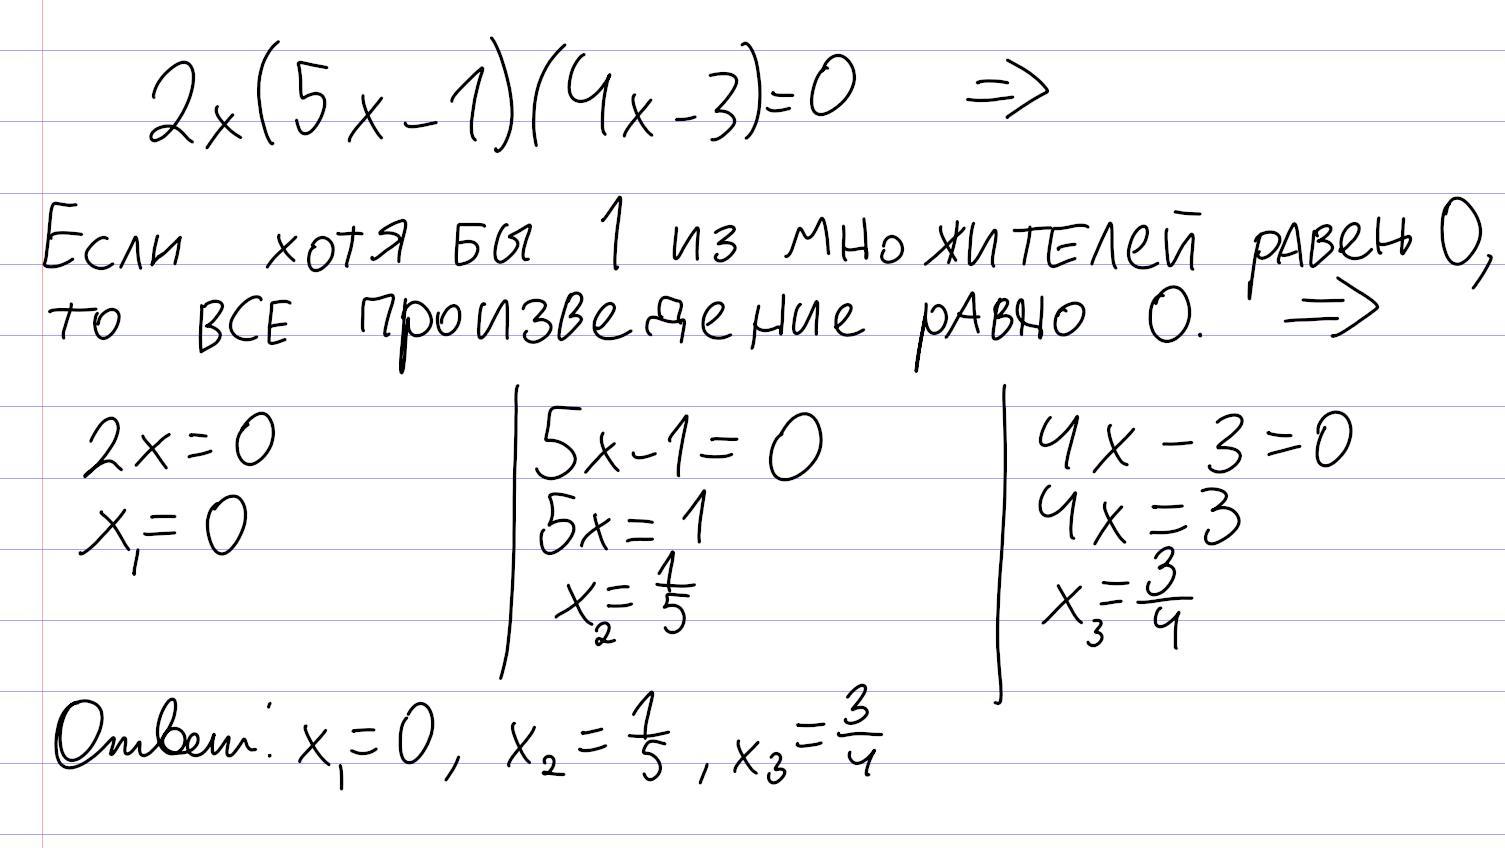 2x(5x-1)(4x-3)=0 =>
Если хотя бы 1 из множителей равен 0,
то все произведение равно 0. =>
2x=0 | 5x-1=0 | 4x-3=0
x₁=0 | 5x=1 | 4x=3
x₂=1/5 | x₃=3/4
Ответ: x₁=0, x₂=1/5, x₃=3/4